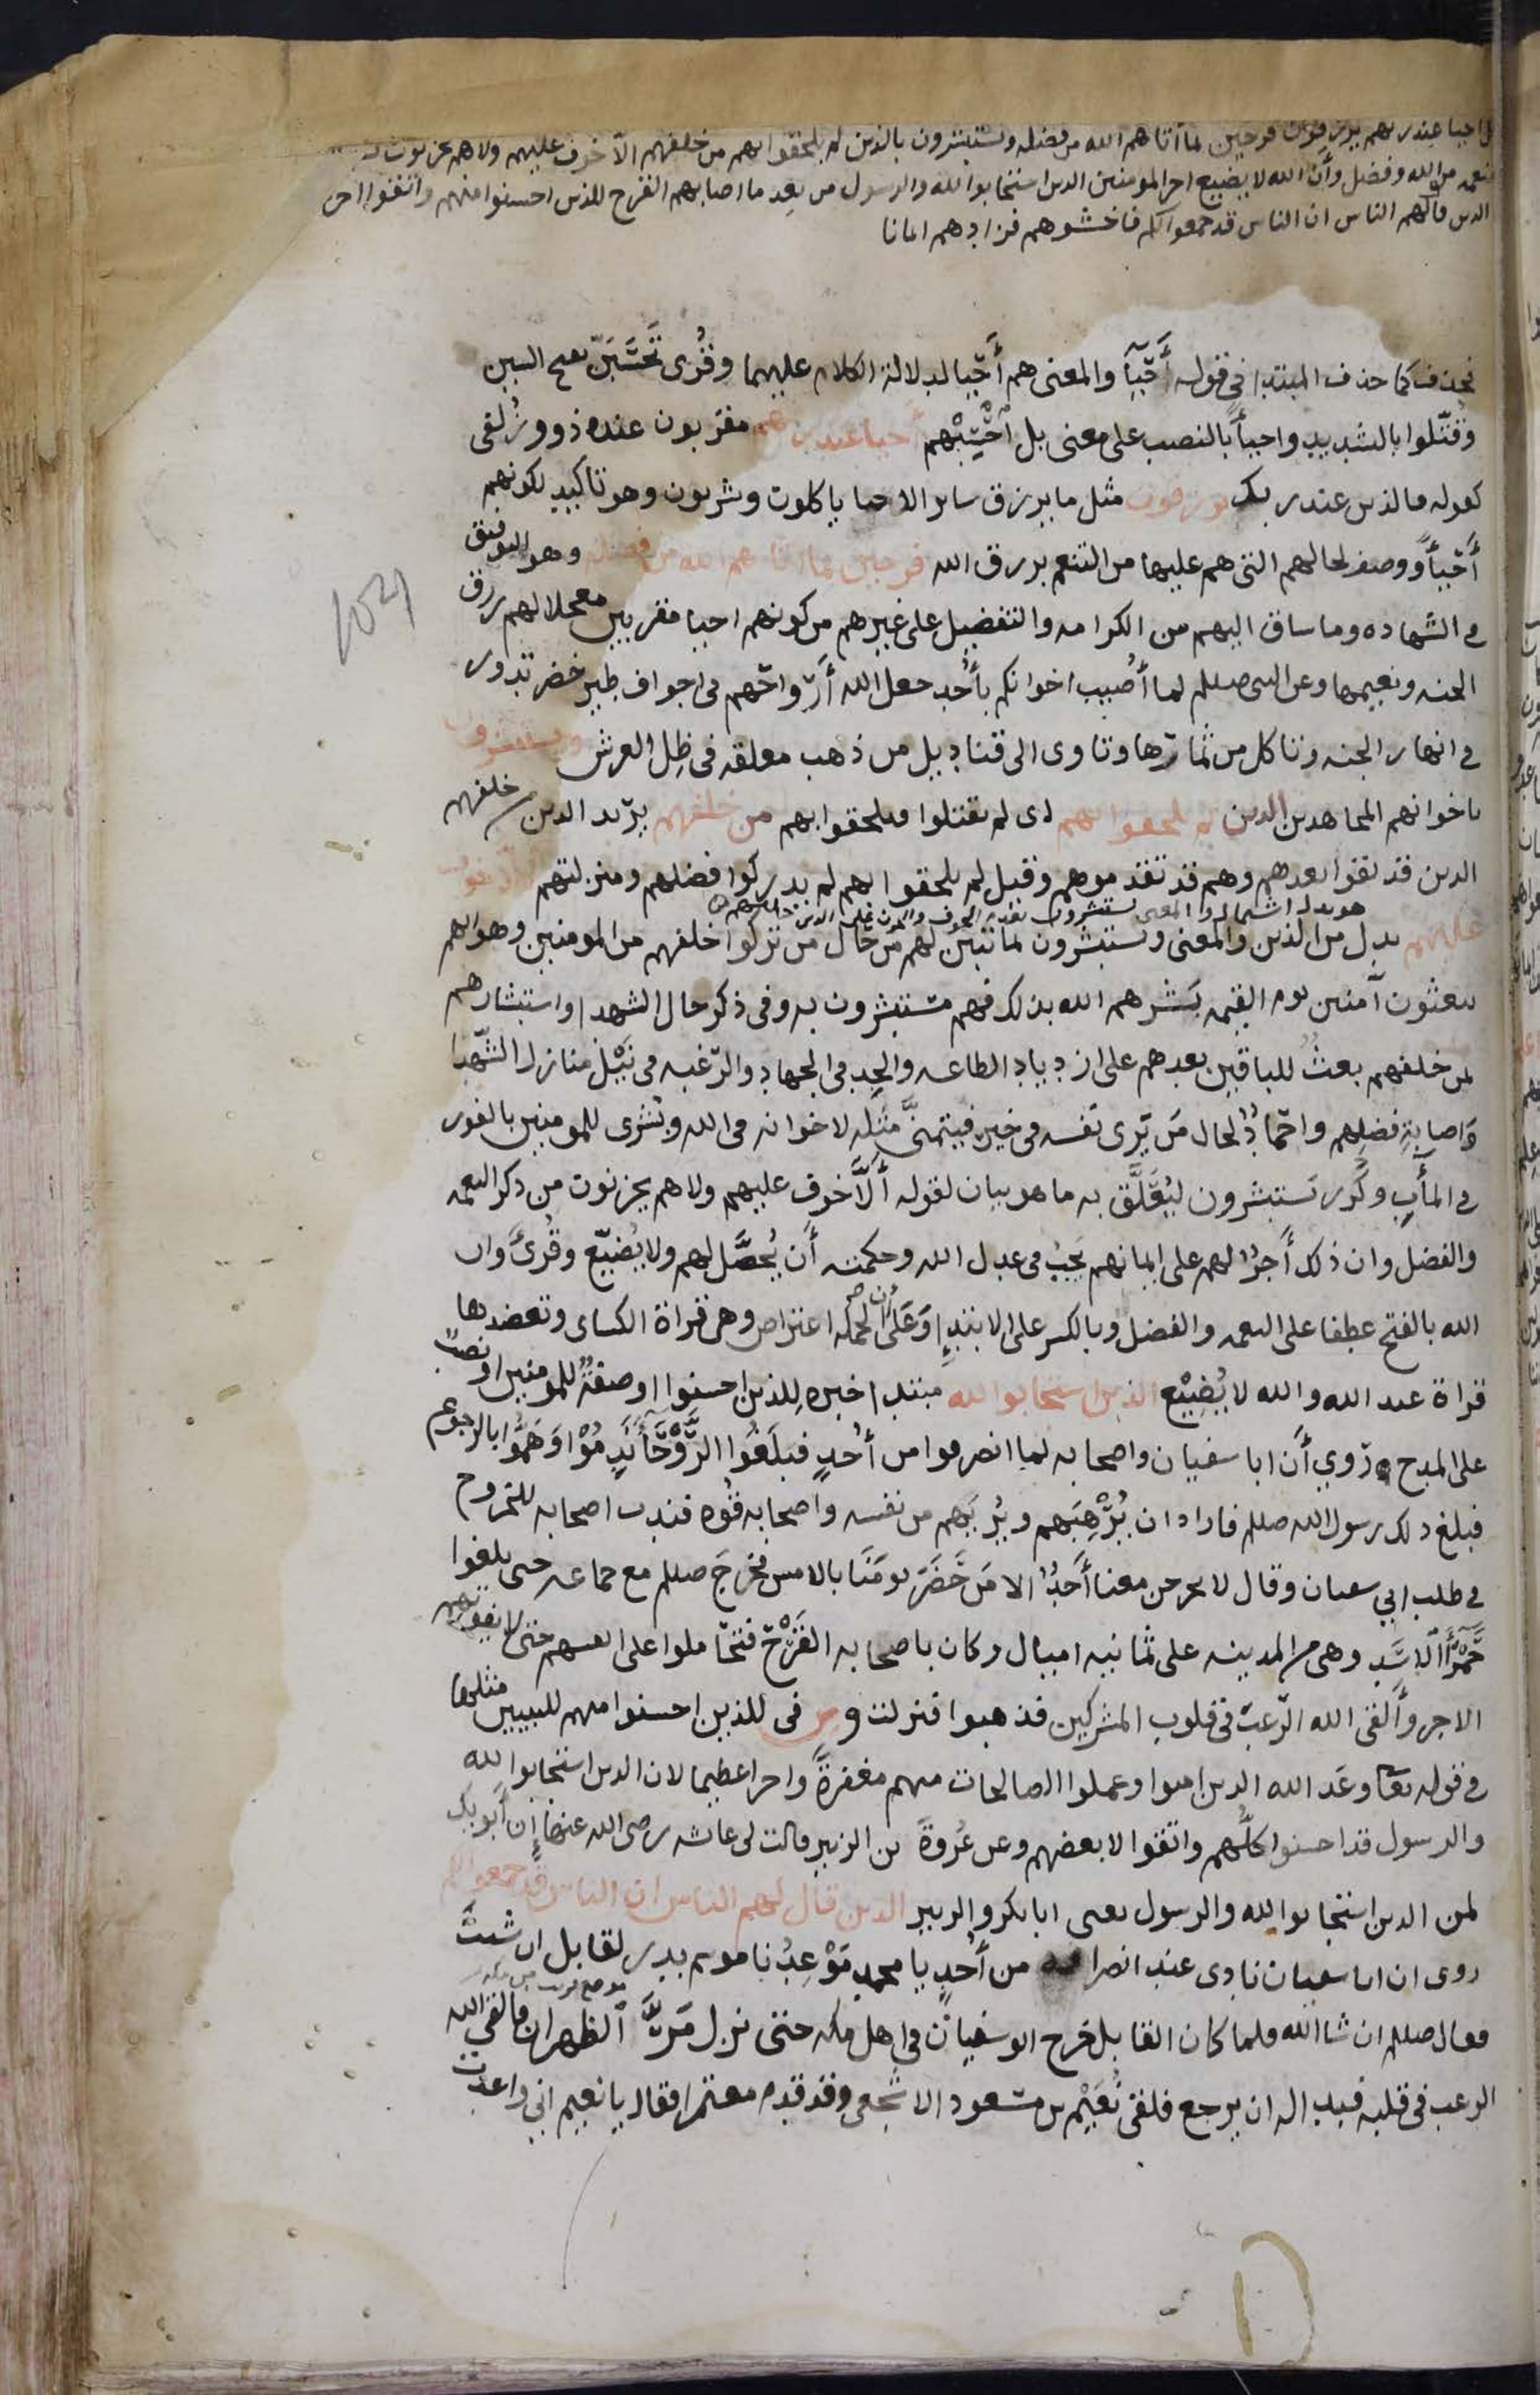 احيا عند ربهم يرزقون فرحين بما آتاهم الله من فضله ويستبشرون بالذين لم يلحقوا بهم من خلفهم الا خوف عليهم ولا هم يحزنون
بنعمه من الله وفضل وأن الله لا يضيع اجر المومنين الدين استجابوا لله والرسول من بعد ما اصابهم القرح للذين احسنوا منهم واتقوا اجر
الدين قال لهم الناس ان الناس قد جمعوا لكم فاخشوهم فزادهم ايمانا
فحذف كما حذف المبتدا في قوله أَحْيَآ والمعنى هم أحيا لدلالة الكلام عليهما وقُرى تَحْسَبَنّ بفتح السين
وقُتّلوا بالتشديد واحيأً بالنصب على معنى بل أحْسِبْهم أحيا عند ربهم مقربون عنده ذوو زُلفى
كقوله فالذين عند ربك يرزقون مثل ما يرزق ساير الاحيا ياكلون ويشربون وهو تاكيد لكونهم
أحْيأً ووصف لحالهم التي هم عليها من التنعم برزق الله فرحين بما اتاهم الله من فضله وهو التوفيق
في الشهاده وما ساق اليهم من الكرامه والتفضيل على غيرهم من كونهم احيا مقربين معجلا لهم رزق
الجنه ونعيمها وعن النبى صلىلم لما أُصيب اخوانكم بأُحد جعل الله أرْواحَهم في اجواف طير خضر تدور
في انهار الجنه وتاكل من ثمارها وتاوى الى قناديل من ذهب معلقه في ظِل العرش ويستبشرون
باخوانهم المجاهدين الذين لم يلحقوا بهم اى لم يقتلوا فيلحقوا بهم من خلفهم يريد الدين من خلفهم
الدين قد بقوا بعدهم وهم قد تقدموهم وقيل لم يلحقوا بهم لم يدركوا فضلهم ومنزلتهم الا خوف
هو بدل اشتمال والمعنى يستبشرون
عليهم بدل من الذين والمعنى ويستبشرون بما تبين لهم من حال من تركوا خلفهم من المومنين وهو انهم
يبعثون آمنين يوم القيمه بَشّرهم الله بذلك فهم مستبشرون به وفى ذكر حال الشهدا واستبشارهم
بمن خلفهم بعثٌ للباقين بعدهم على ازدياد الطاعه والجِد في الجهاد والرّغبه في نَيْل منازل الشُهدا
وَاصابةِ فضلِهم واحمادٌ لحال مَن يَرى نَفسه في خير فيتمنّى مثله لاخوانه في الله وبُشرى للمومنين بالفوز
في المآبِ وكُرر يَستبشرون ليُعَلَّق به ما هو بيان لقوله ألّا خوف عليهم ولا هم يحزنون من ذكر النعمه
والفضل وان ذلك أَجرٌ لهم على ايمانهم يَجِبُ في عدل الله وحكمته أَن يُحصَّل لهم ولا يُضيّع وقُرئ وان
الله بالفتح عطفا على النعمه والفضل وبالكسر على الابتدإِ وَعَلى أن الجمله اعتراض وهي قراة الكساى وتعضدها
قراة عبد الله والله لا يُضِيْع الذين استجابوا لله مبتدا خبره للذين احسنوا او صفةٌ للمومنين او نصبٌ
على المدح رُوي أَن ابا سفيان واصحابه لما انصرفوا من أُحدٍ فبلَغُوا الرَّوْحَآءَ نَدِمُوْا وَهَمُّوا بالرجوع
فبلغ ذلك رسول الله صلىلم فاراد ان يُرْهِبَهم ويُرِيَهم من نفسه واصحابه قُوه فندب اصحابه للخروج
في طلب ابي سفيان وقال لا يخرجن معنا أَحَدٌ الا مَن حَضَرَ يومَنَا بالامس فخرَجَ صلىلم مع جماعه حتى بلغوا
حَمْرَآءَ الاسَدِ وهي من المدينه على ثمانيه اميال وكان باصحابه القَرْح فتحاملوا على انفسهم حتى لا يفوتهم
الاجر وأَلقى الله الرّعبَ في قلوب المشركين فذهبوا فنزلت ومِن فى للذين احسنوا منهم للتبيين مثلها
في قوله تعا وعَد الله الدين امنوا وعملوا الصالحات منهم مغفرةً واجرا عظيما لان الدين استجابوا لله
والرسول قد احسنوا كلُّهم واتقوا لا بعضهم وعن عُروةَ بن الزبير قالت لى عائشه رضى الله عنها إن أبويك
لمن الدين استجابوا لله والرسول يعنى ابا بكر والزبير الدين قال لهم الناس ان الناس قد جمعوا لكم
روى ان ابا سفيان نادى عند انصرافه من أُحدٍ يا محمد مَوْعِدُنا موسم بدر لقابل ان شئتَ
فقال صلىلم ان شا الله فلما كان القابل خرج ابو سفيان في اهل مكه حتى نزل مَرَّ الظهران فالقى الله
الرعب في قلبه فبدا له ان يرجع فلقى نُعَيْم بن مسعود الاشجعى وقد قدم معتمرا فقال يا نعيم اني واعدت